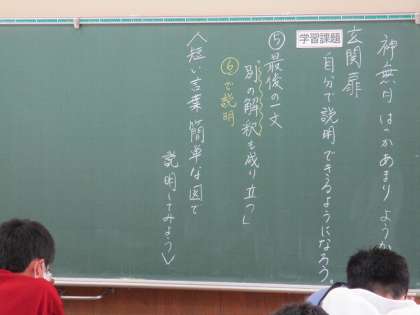 神無月
玄関扉
学習課題
自分で説明できるようになろう。
⑤最後の一文
「別の解釈も成り立つ」
⑥で説明
〈短い言葉 簡単な図で
説明してみよう〉